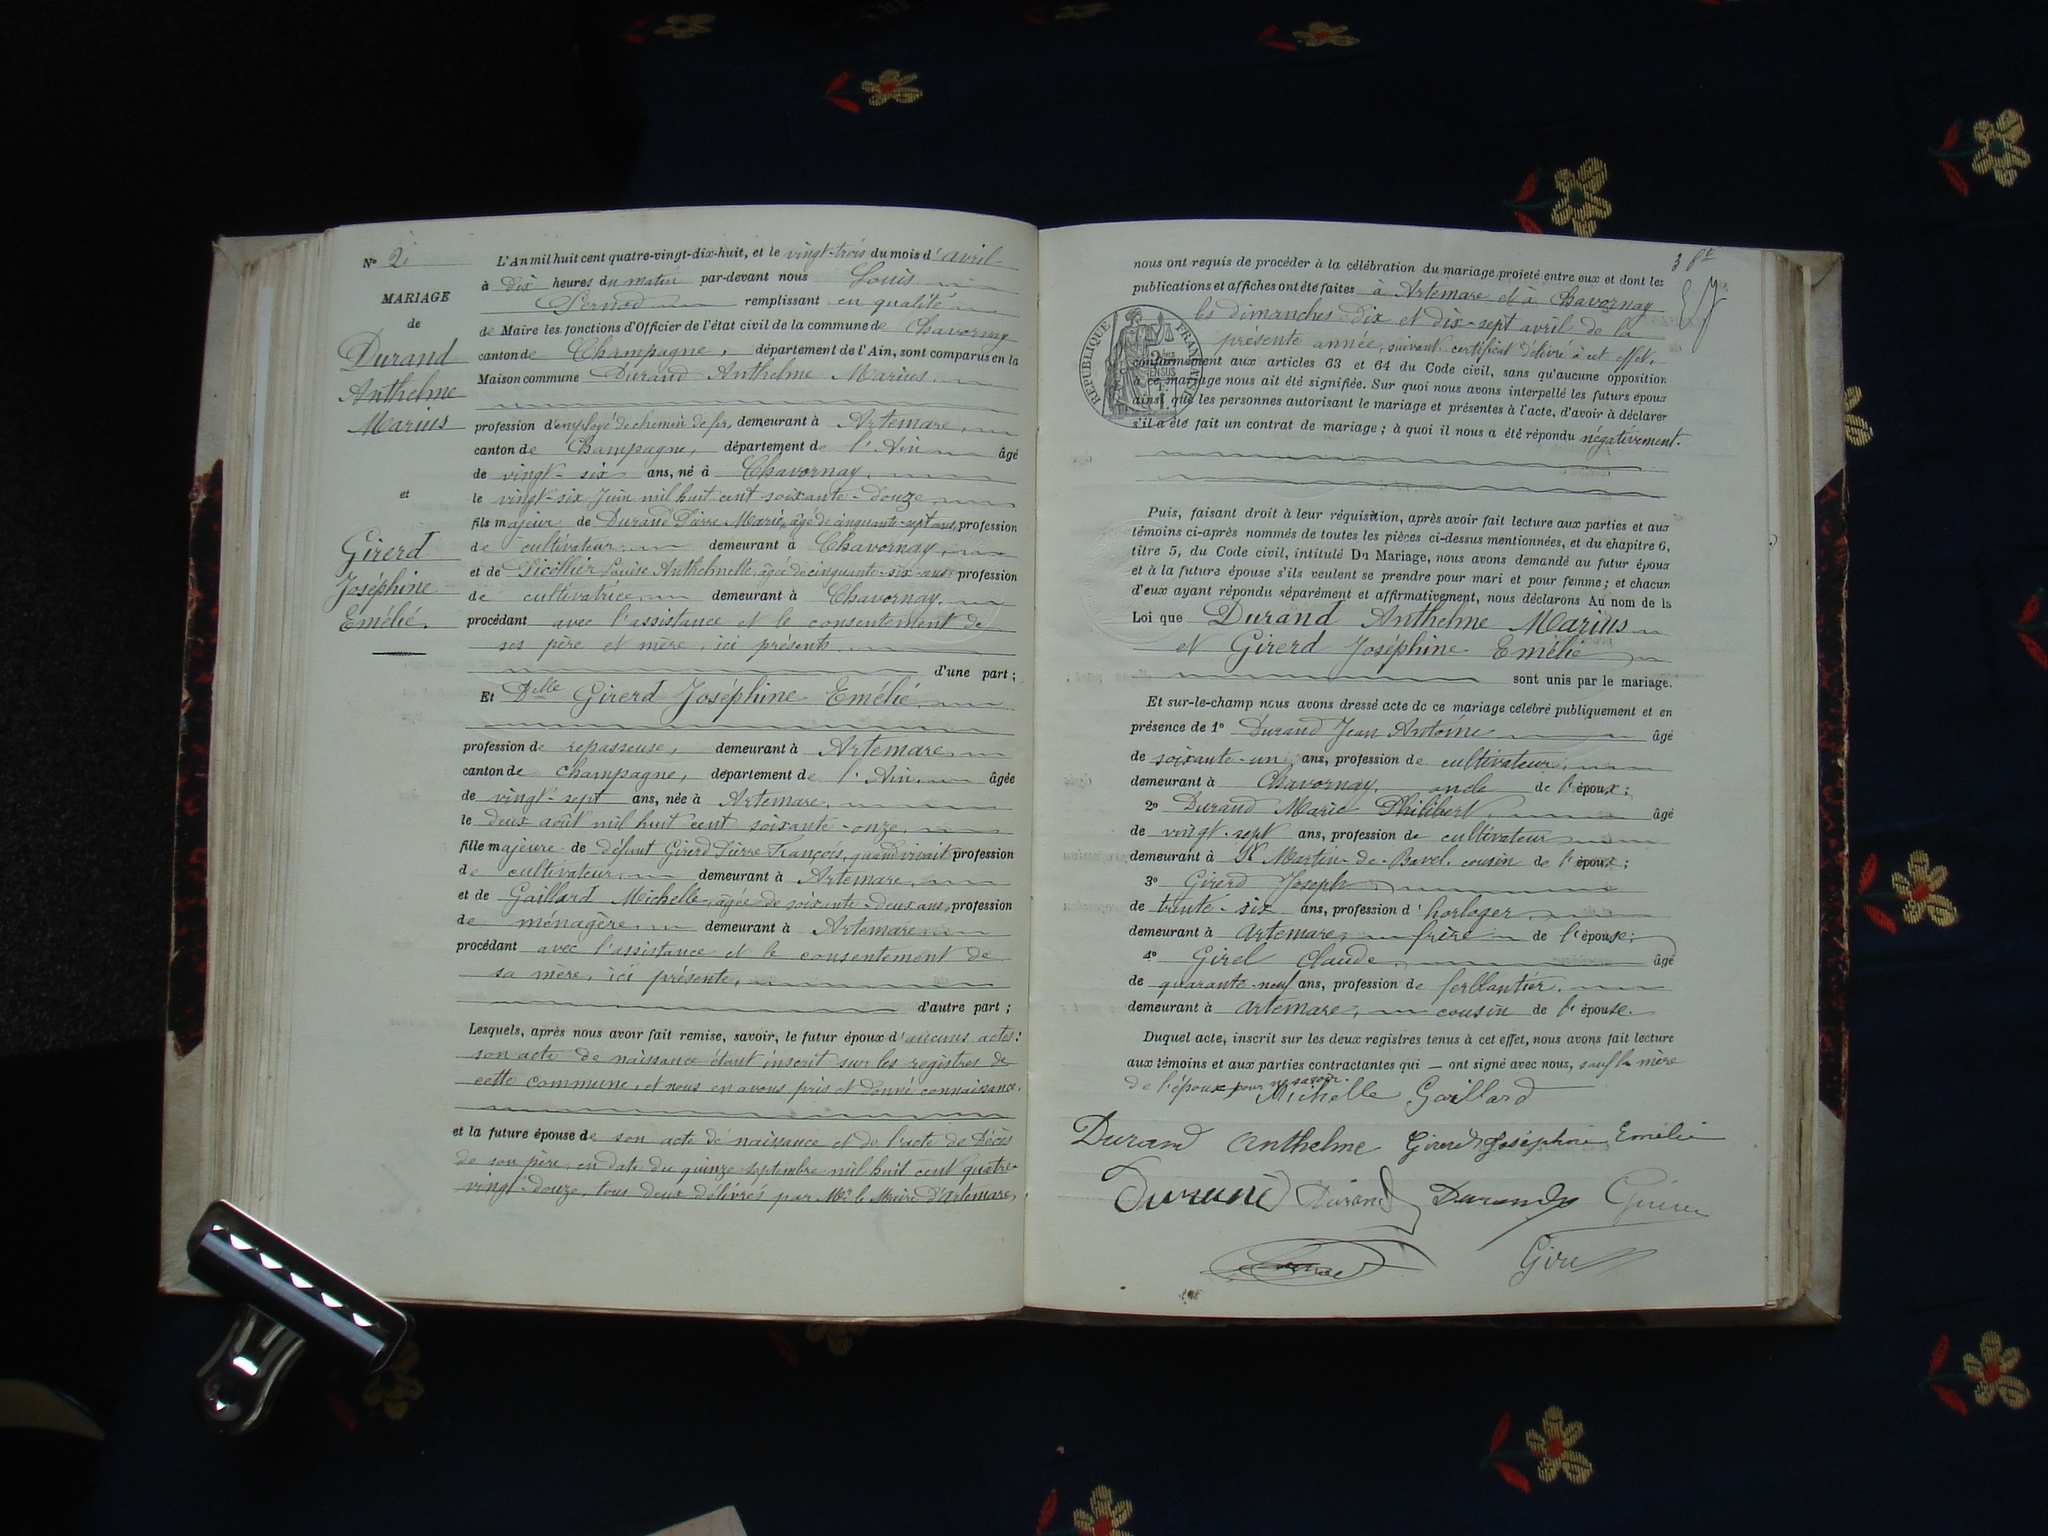 N° 2
MARIAGE
de
Durand
Anthelme
Marius
et
Girerd
Joséphine
Emélie.
L'An mil huit cent quatre-vingt-dix-huit, et le vingt-trois du mois d'avril
à dix heures du matin par-devant nous Louis
remplissant en qualité
de Maire les fonctions d'Officier de l'état civil de la commune de Chavornay
canton de Champagne, département de l'Ain, sont comparus en la
Maison commune Durand Anthelme Marius
profession d'employé de chemin de fer, demeurant à Artemare,
canton de Champagne, département de l'Ain âgé
de vingt-six ans, né à Chavornay
le vingt-six Juin mil huit cent soixante-douze
fils majeur de Durand Pierre Marie, âgé de cinquante-sept ans, profession
de cultivateur demeurant à Chavornay,
et de Picollier Louise Anthelmette, âgée de cinquante-six ans profession
de cultivatrice demeurant à Chavornay.
procédant avec l'assistance et le consentement de
ses père et mère, ici présents
d'une part ;
Et Dlle Girerd Joséphine Emélié
profession de repasseuse, demeurant à Artemare
canton de Champagne, département de l'Ain, âgée
de vingt-sept ans, née à Artemare
le deux août mil huit cent soixante-onze
fille majeure de défunt Girerd Pierre François, quand vivait profession
de cultivateur demeurant à Artemare
et de Gaillard Michelle, âgée de soixante-deux ans, profession
de ménagère demeurant à Artemare
procédant avec l'assistance et le consentement de
sa mère, ici présente,
d'autre part ;
Lesquels, après nous avoir fait remise, savoir, le futur époux d'aucuns actes:
son acte de naissance étant inscrit sur les registres de
cette commune, et nous en avons pris et donné connaissance.
et la future épouse de son acte de naissance et de l'acte de décès
de son père en date du quinze septembre mil huit cent quatre-
vingt-douze, tous deux délivrés par Mr le Maire d'Artemare,
3
nous ont requis de procéder à la célébration du mariage projeté entre eux et dont les
publications et affiches ont été faites à Artemare et à Chavornay
les dimanches dix et dix-sept avril de la
présente année, suivant certificat délivré à cet effet,
RÉPUBLIQUE FRANÇAISE
conformément aux articles 63 et 64 du Code civil, sans qu'aucune opposition
à ce mariage nous ait été signifiée. Sur quoi nous avons interpellé les futurs époux
ainsi que les personnes autorisant le mariage et présentes à l'acte, d'avoir à déclarer
s'il a été fait un contrat de mariage ; à quoi il nous a été répondu négativement.
Puis, faisant droit à leur réquisition, après avoir fait lecture aux parties et aux
témoins ci-après nommés de toutes les pièces ci-dessus mentionnées, et du chapitre 6,
titre 5, du Code civil, intitulé Du Mariage, nous avons demandé au futur époux
et à la future épouse s'ils veulent se prendre pour mari et pour femme ; et chacun
d'eux ayant répondu séparément et affirmativement, nous déclarons Au nom de la
Loi que Durand Anthelme Marius
et Girerd Joséphine Emélié
sont unis par le mariage.
Et sur-le-champ nous avons dressé acte de ce mariage célébré publiquement et en
présence de 1° Durand Jean Antoine âgé
de soixante-un ans, profession de cultivateur,
demeurant à Chavornay, oncle de l'époux ;
2° Durand Marie Philibert, âgé
de vingt-sept ans, profession de cultivateur
demeurant à St Martin-de-Bavel, cousin de l'époux ;
3° Girerd Joseph
de trente-six ans, profession d'horloger,
demeurant à Artemare, frère de l'épouse ;
4° Girel Claude, âgé
de quarante-neuf ans, profession de ferblantier.
demeurant à Artemare, cousin de l'épouse.
Duquel acte, inscrit sur les deux registres tenus à cet effet, nous avons fait lecture
aux témoins et aux parties contractantes qui — ont signé avec nous, sauf la mère
de l'époux pour ne savoir.
Michelle Gaillard
Durand Anthelme Girerd Joséphine Emélie
Durand Durand Durand